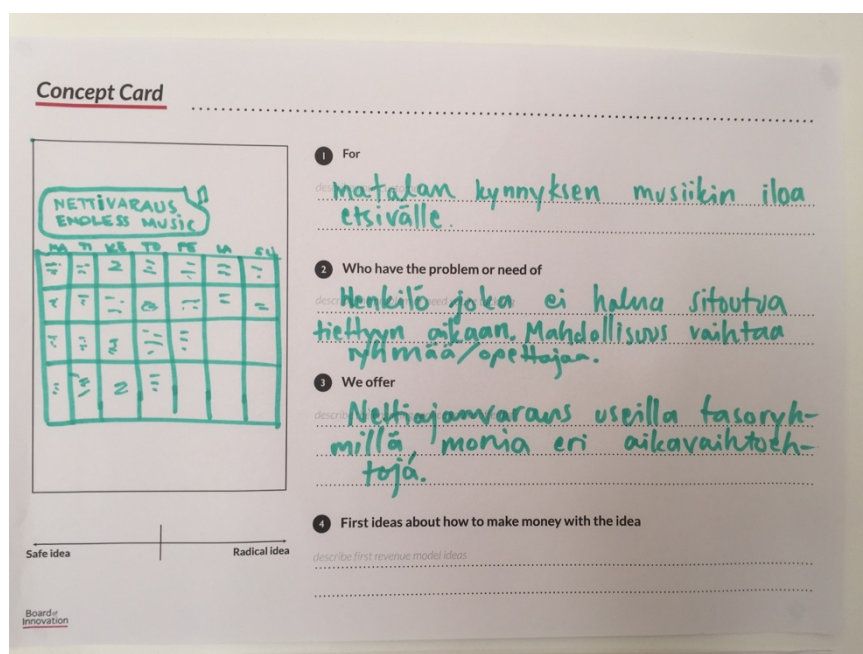 Concept Card
NETTIVARAUS
ENDLESS MUSIC
MA TI KE TO PE LA SU
Safe idea
Radical idea
Board of
Innovation
1 For
matalan kynnyksen musiikin iloa
etsivälle.
2 Who have the problem or need of
Henkilö joka ei halua sitoutua
tiettyyn aikaan. Mahdollisuus vaihtaa
ryhmää/opettajaa.
3 We offer
Nettiajanvaraus useilla tasoryh-
millä, monia eri aikavaihtoeh-
toja.
4 First ideas about how to make money with the idea
describe first revenue model ideas